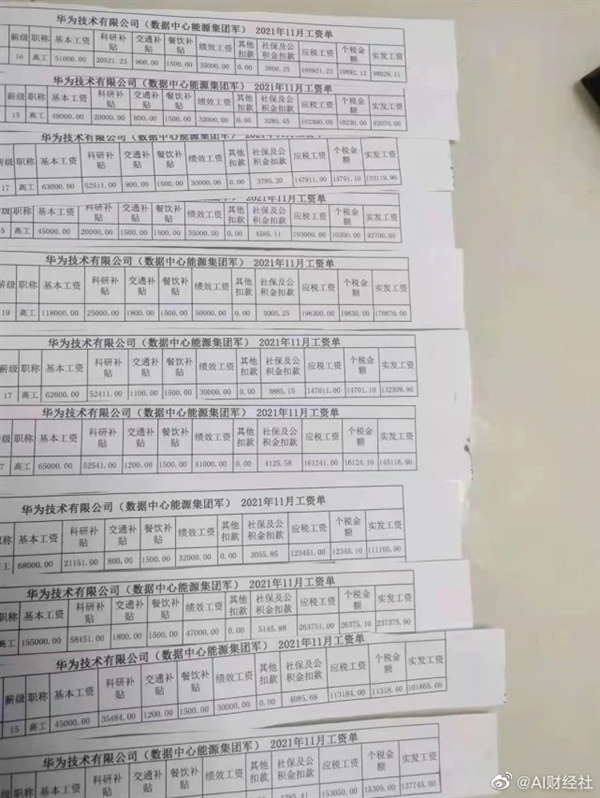 华为技术有限公司（数据中心能源集团军） 2021年11月工资单
薪级 职称 基本工资 科研补贴 交通补贴 餐饮补贴 绩效工资 其他扣款 社保及公积金扣款 应税工资 个税金额 实发工资
16 高工 51000.00 20521.23 900.00 1500.00 35000.00 0.00
华为技术有限公司（数据中心能源集团军） 2021年11月工资单
薪级 职称 基本工资 科研补贴 交通补贴 餐饮补贴 绩效工资 其他扣款 社保及公积金扣款 应税工资 个税金额 实发工资
15 高工 48000.00 20000.00 800.00 1500.00 32000.00 0.00 3285.45 102300.00 10230.00 92070.00
薪级 职称 基本工资 科研补贴 交通补贴 餐饮补贴 绩效工资 其他扣款 社保及公积金扣款 应税工资 个税金额 实发工资
17 高工 63000.00 52511.00 900.00 1500.00 30000.00 0.00 3785.20 147911.00 14791.10 133119.90
职称 基本工资 科研补贴 交通补贴 餐饮补贴 绩效工资 其他扣款 社保及公积金扣款 应税工资 个税金额 实发工资
5 高工 45000.00 20000.00 1500.00 1500.00 35000.00 0.00 4585.11 103000.00 10300.00 92700.00
华为技术有限公司（数据中心能源集团军） 2021年11月工资单
薪级 职称 基本工资 科研补贴 交通补贴 餐饮补贴 绩效工资 其他扣款 社保及公积金扣款 应税工资 个税金额 实发工资
19 高工 118000.00 25000.00 1800.00 1500.00 50000.00 0.00 5005.25 196300.00 19630.00 176670.00
华为技术有限公司（数据中心能源集团军） 2021年11月工资单
薪级 职称 基本工资 科研补贴 交通补贴 餐饮补贴 绩效工资 其他扣款 社保及公积金扣款 应税工资 个税金额 实发工资
17 高工 62000.00 52411.00 1100.00 1500.00 30000.00 0.00 3885.15 147011.00 14701.10 132309.90
华为技术有限公司（数据中心能源集团军） 2021年11月工资单
职称 基本工资 科研补贴 交通补贴 餐饮补贴 绩效工资 其他扣款 社保及公积金扣款 应税工资 个税金额 实发工资
7 高工 65000.00 52541.00 1200.00 1500.00 41000.00 0.00 4125.58 161241.00 16124.10 145116.90
华为技术有限公司（数据中心能源集团军） 2021年11月工资单
基本工资 科研补贴 交通补贴 餐饮补贴 绩效工资 其他扣款 社保及公积金扣款 应税工资 个税金额 实发工资
68000.00 21151.00 800.00 1500.00 32000.00 0.00 3055.85 123451.00 12345.10 111105.90
华为技术有限公司（数据中心能源集团军） 2021年11月工资单
职称 基本工资 科研补贴 交通补贴 餐饮补贴 绩效工资 其他扣款 社保及公积金扣款 应税工资 个税金额 实发工资
高工 155000.00 58451.00 1800.00 1500.00 47000.00 0.00 5145.98 263751.00 26375.10 237375.90
华为技术有限公司（数据中心能源集团军） 2021年11月工资单
薪级 职称 基本工资 科研补贴 交通补贴 餐饮补贴 绩效工资 其他扣款 社保及公积金扣款 应税工资 个税金额 实发工资
15 高工 45000.00 35484.00 1200.00 1500.00 30000.00 0.00 4085.68 113184.00 11318.40 101865.60
华为技术有限公司（数据中心能源集团军） 2021年11月工资单
基本工资 科研补贴 交通补贴 餐饮补贴 绩效工资 其他扣款 社保及公积金扣款 应税工资 个税金额 实发工资
153050.00 15305.00 137745.00
@AI财经社